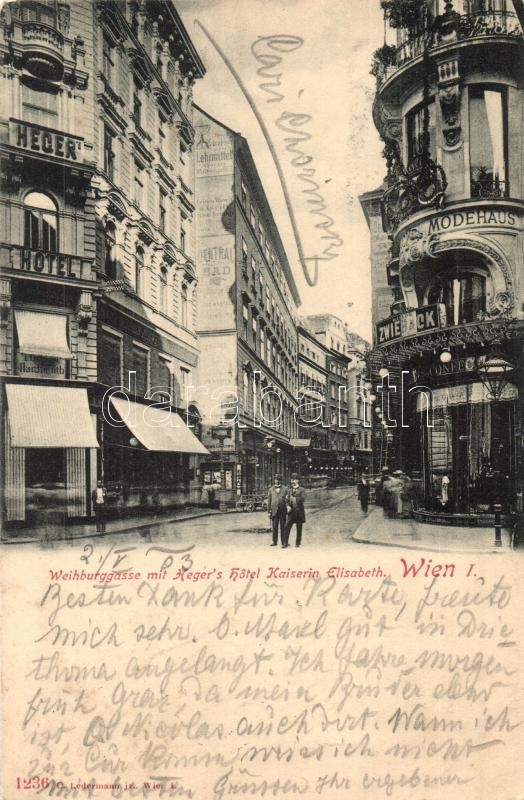 HEGER
HOTEL
Lehrmittel
CENTRAL
BAD
MODEHAUS
ZWIEBACK
CONFEC
darabanth
21/V 03
Weihburggasse mit Heger's Hôtel Kaiserin Elisabeth. Wien I.
Besten Dank für Karte, freute
mich sehr. O. Maxl gut in Drie
thoma angelangt. Ich fahre morgen
früh Graz, da mein Bruder eben
ist O Nicolas auch dort. Wann ich
zur Cur komm, weiss ich nicht
Mit besten Grüssen Ihr ergebener
1236 C. Ledermann jr. Wien I.